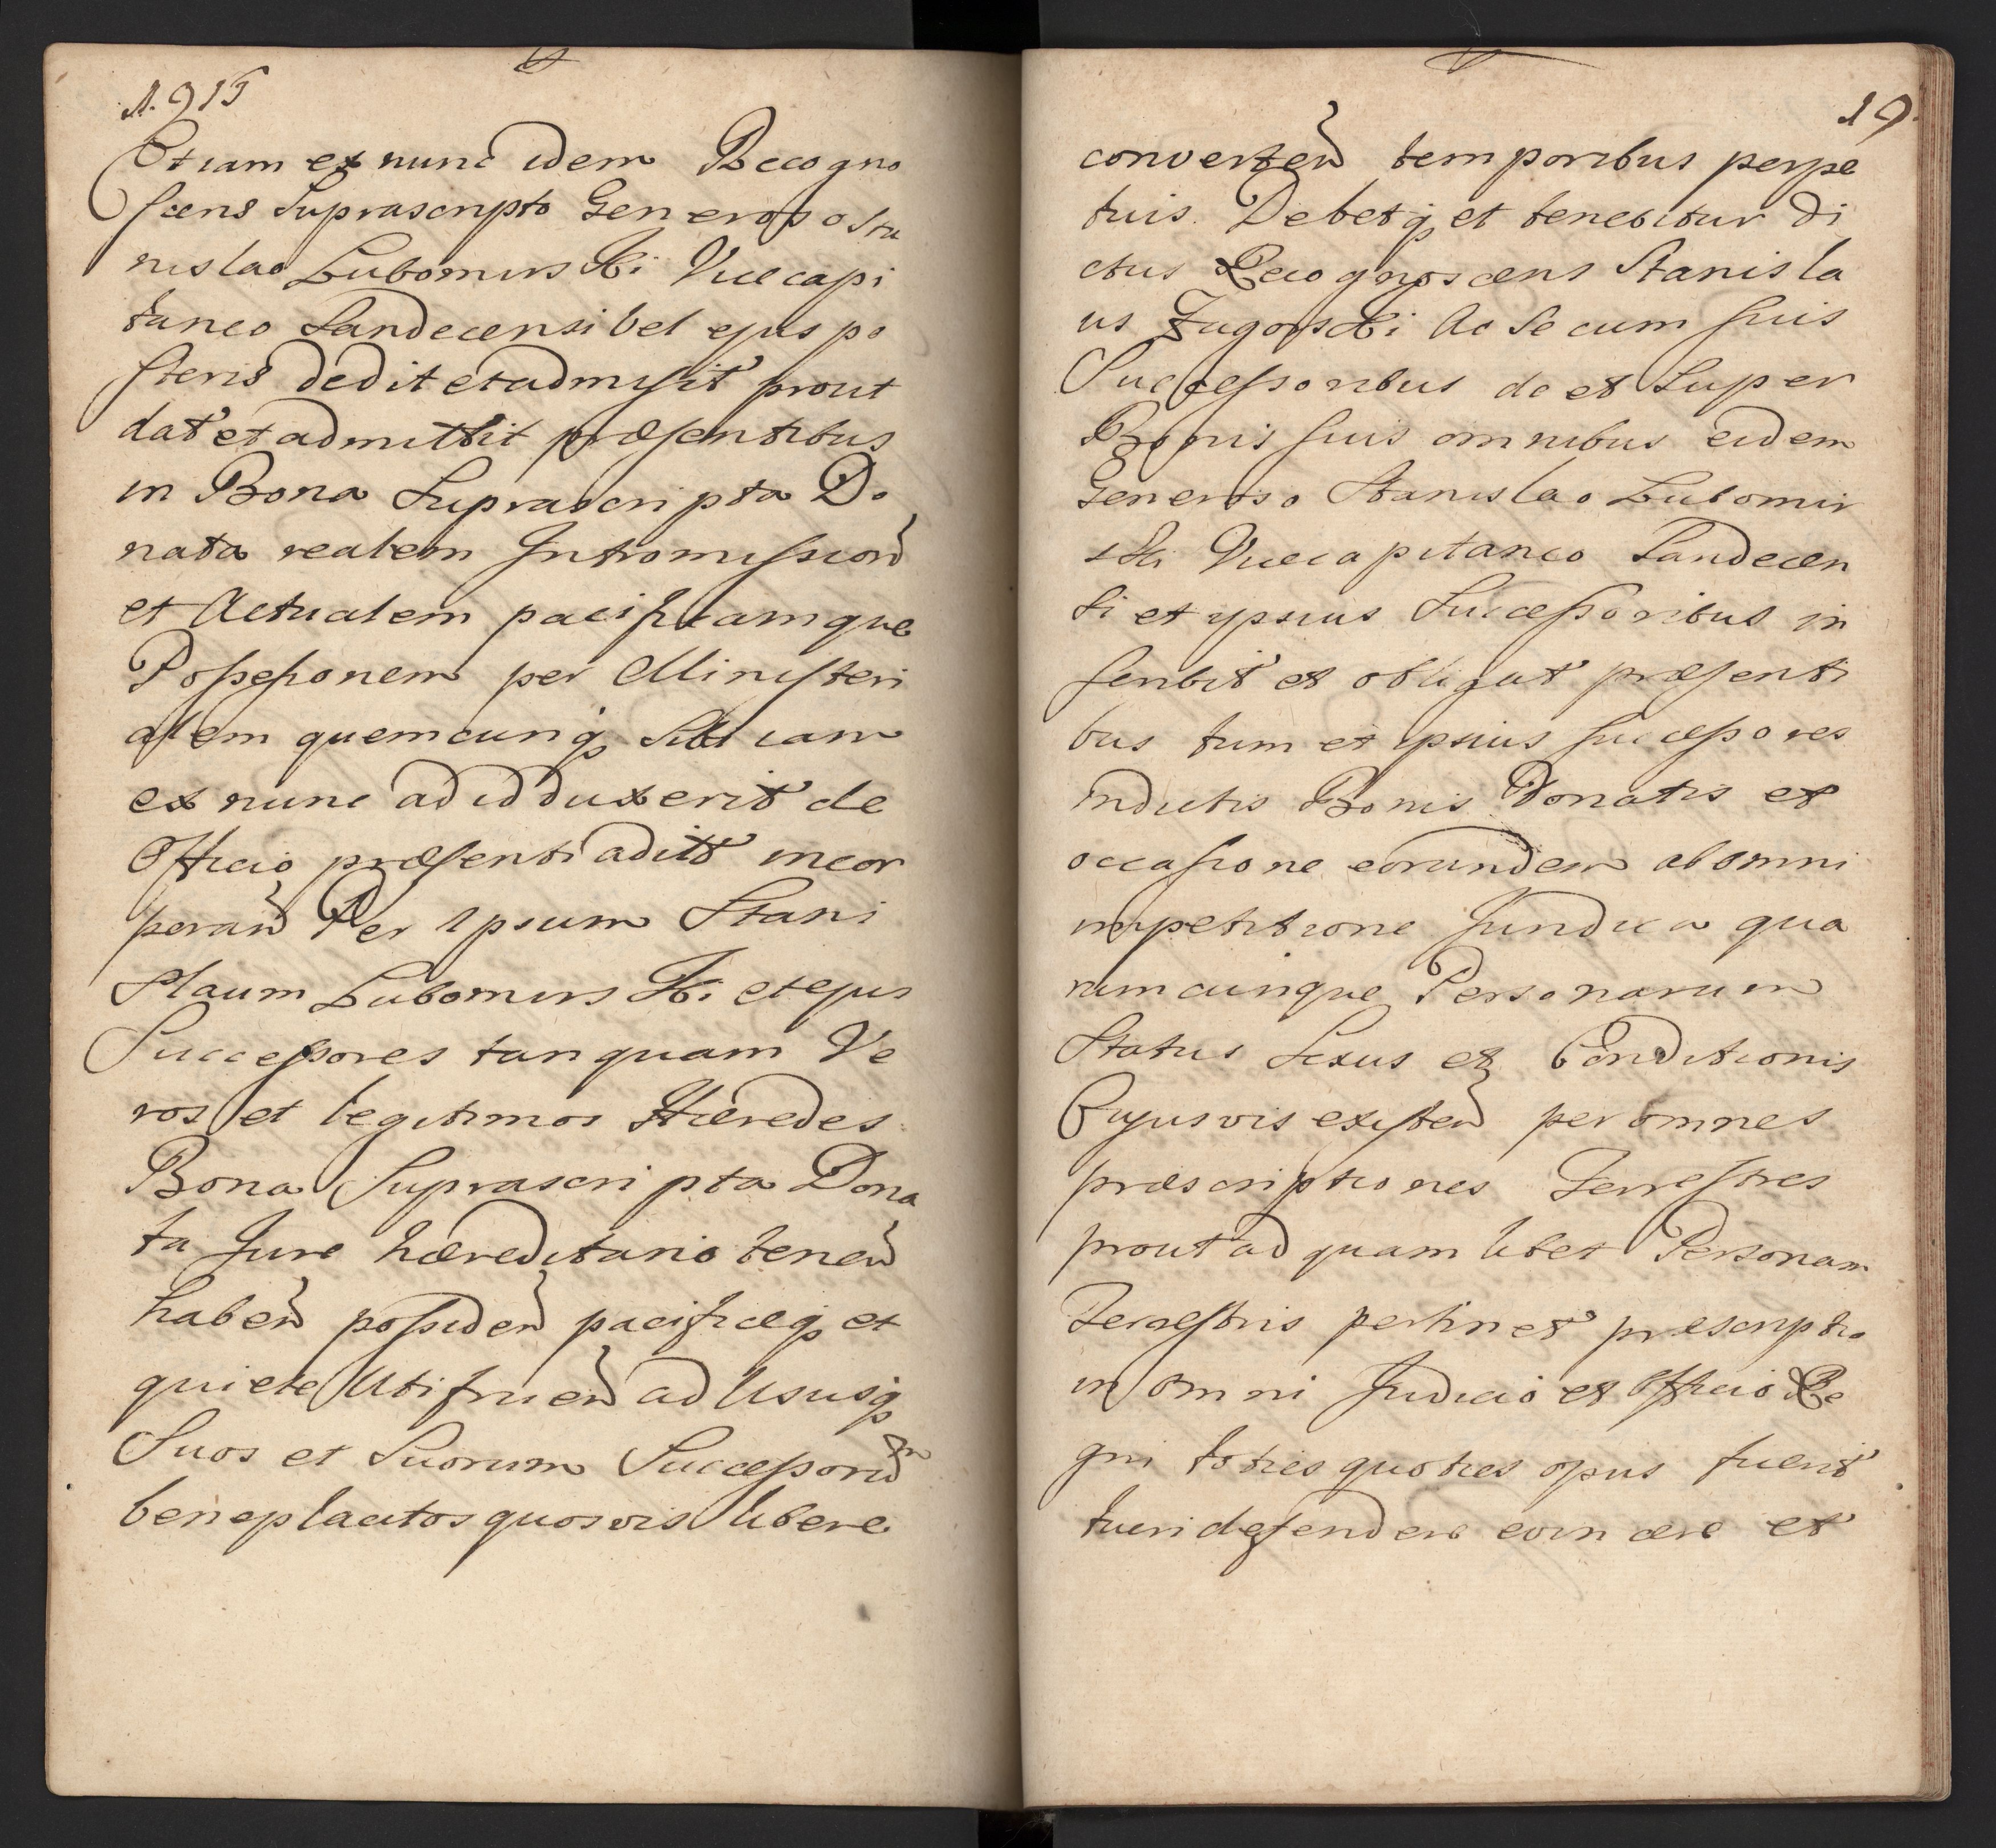 N. 915
Etiam ex nunc idem Recogno
scens Suprascripto Generoso Sta
nislao Lubomirski Vicecapi
taneo Sandecensi Vel ejus po
steris dedit et admisit prout
dat et admittit præsentibus
in Bona Suprascripta Do
nata realem Intromission
et Actualem pacificamque
Possessionem per Ministeri
alem quemcunq sibi iam
ex nunc ad id duxerit de
Officio præsenti addit incor
peran Per ipsum Stani
slaum Lubomirski et ejus
Successores tanquam Ve
ros et legitimos Hæredes
Bona Suprascripta Dona
ta Jure hæreditario tenen
haben possiden pacificeq et
quiete Utifruen ad Ususq
Suos et Suorum Successorum
beneplacitos quosvis libere
19.
converten temporibus perpe
tuis. Debetq et tenebitur di
ctus Recognoscens Stanisla
us Zagorski Ac Se cum suis
Successoribus de et Super
Bonis suis omnibus eidem
Generoso Stanislao Lubomir
ski Vicecapitaneo Sandecen
si et ipsius Successoribus in
scribit et obligat præsenti
bus tum et ipsius successores
indictis Bonis Donatis et
occasione eorundem ab omni
impetitione Juridica qua
rumcunque Personarum
Status Sexus et Conditionis
Cujusvis existen per omnes
præscriptiones Terrestres
prout ad quam libet Personam
Terrestris pertinet præscriptio
in omni Judicio et Officio Re
gni toties quoties opus fuerit
tueri defendere evincere et